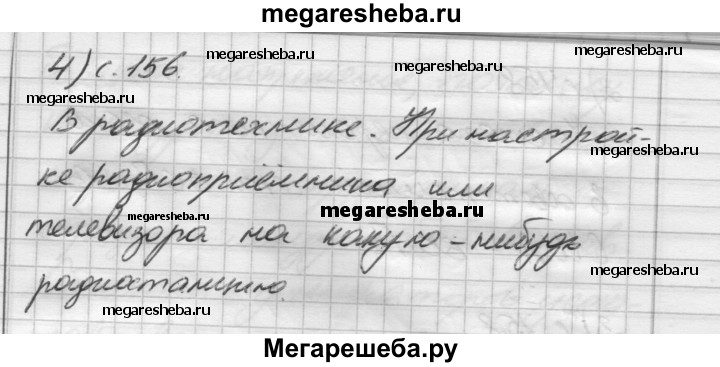 megaresheba.ru
4) с. 156. megaresheba.ru megaresheba.ru
megaresheba.ru
В радиотехнике. При настрой-
megaresheba.ru
ке радиоприёмника или
megaresheba.ru megaresheba.ru
телевизора на какую-нибудь
megaresheba.ru
радиостанцию.
megaresheba.ru
Мегарешеба.ру